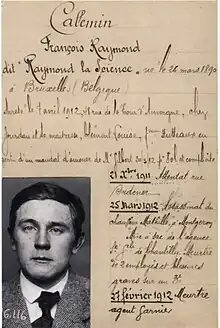 Callemin
François Raymond
dit "Raymond la Science" né le 26 mars 1890
à Bruxelles (Belgique)
7 avril 1912, rue de la Tour d'Auvergne, chez
Jourdan et sa maîtresse, Clément Louise, femme
d'un mandat d'amener de Mr Gilbert
21 Xbre 1911 Attentat rue
Ordener
25 Mars 1912 Assassinat du
chauffeur Mathillé, à Montgeron
Mise à sac de l'agence
de Chantilly. Meurtre
de 2 employés et blessures
graves sur un 3e
27 février 1912 Meurtre
agent Garnier